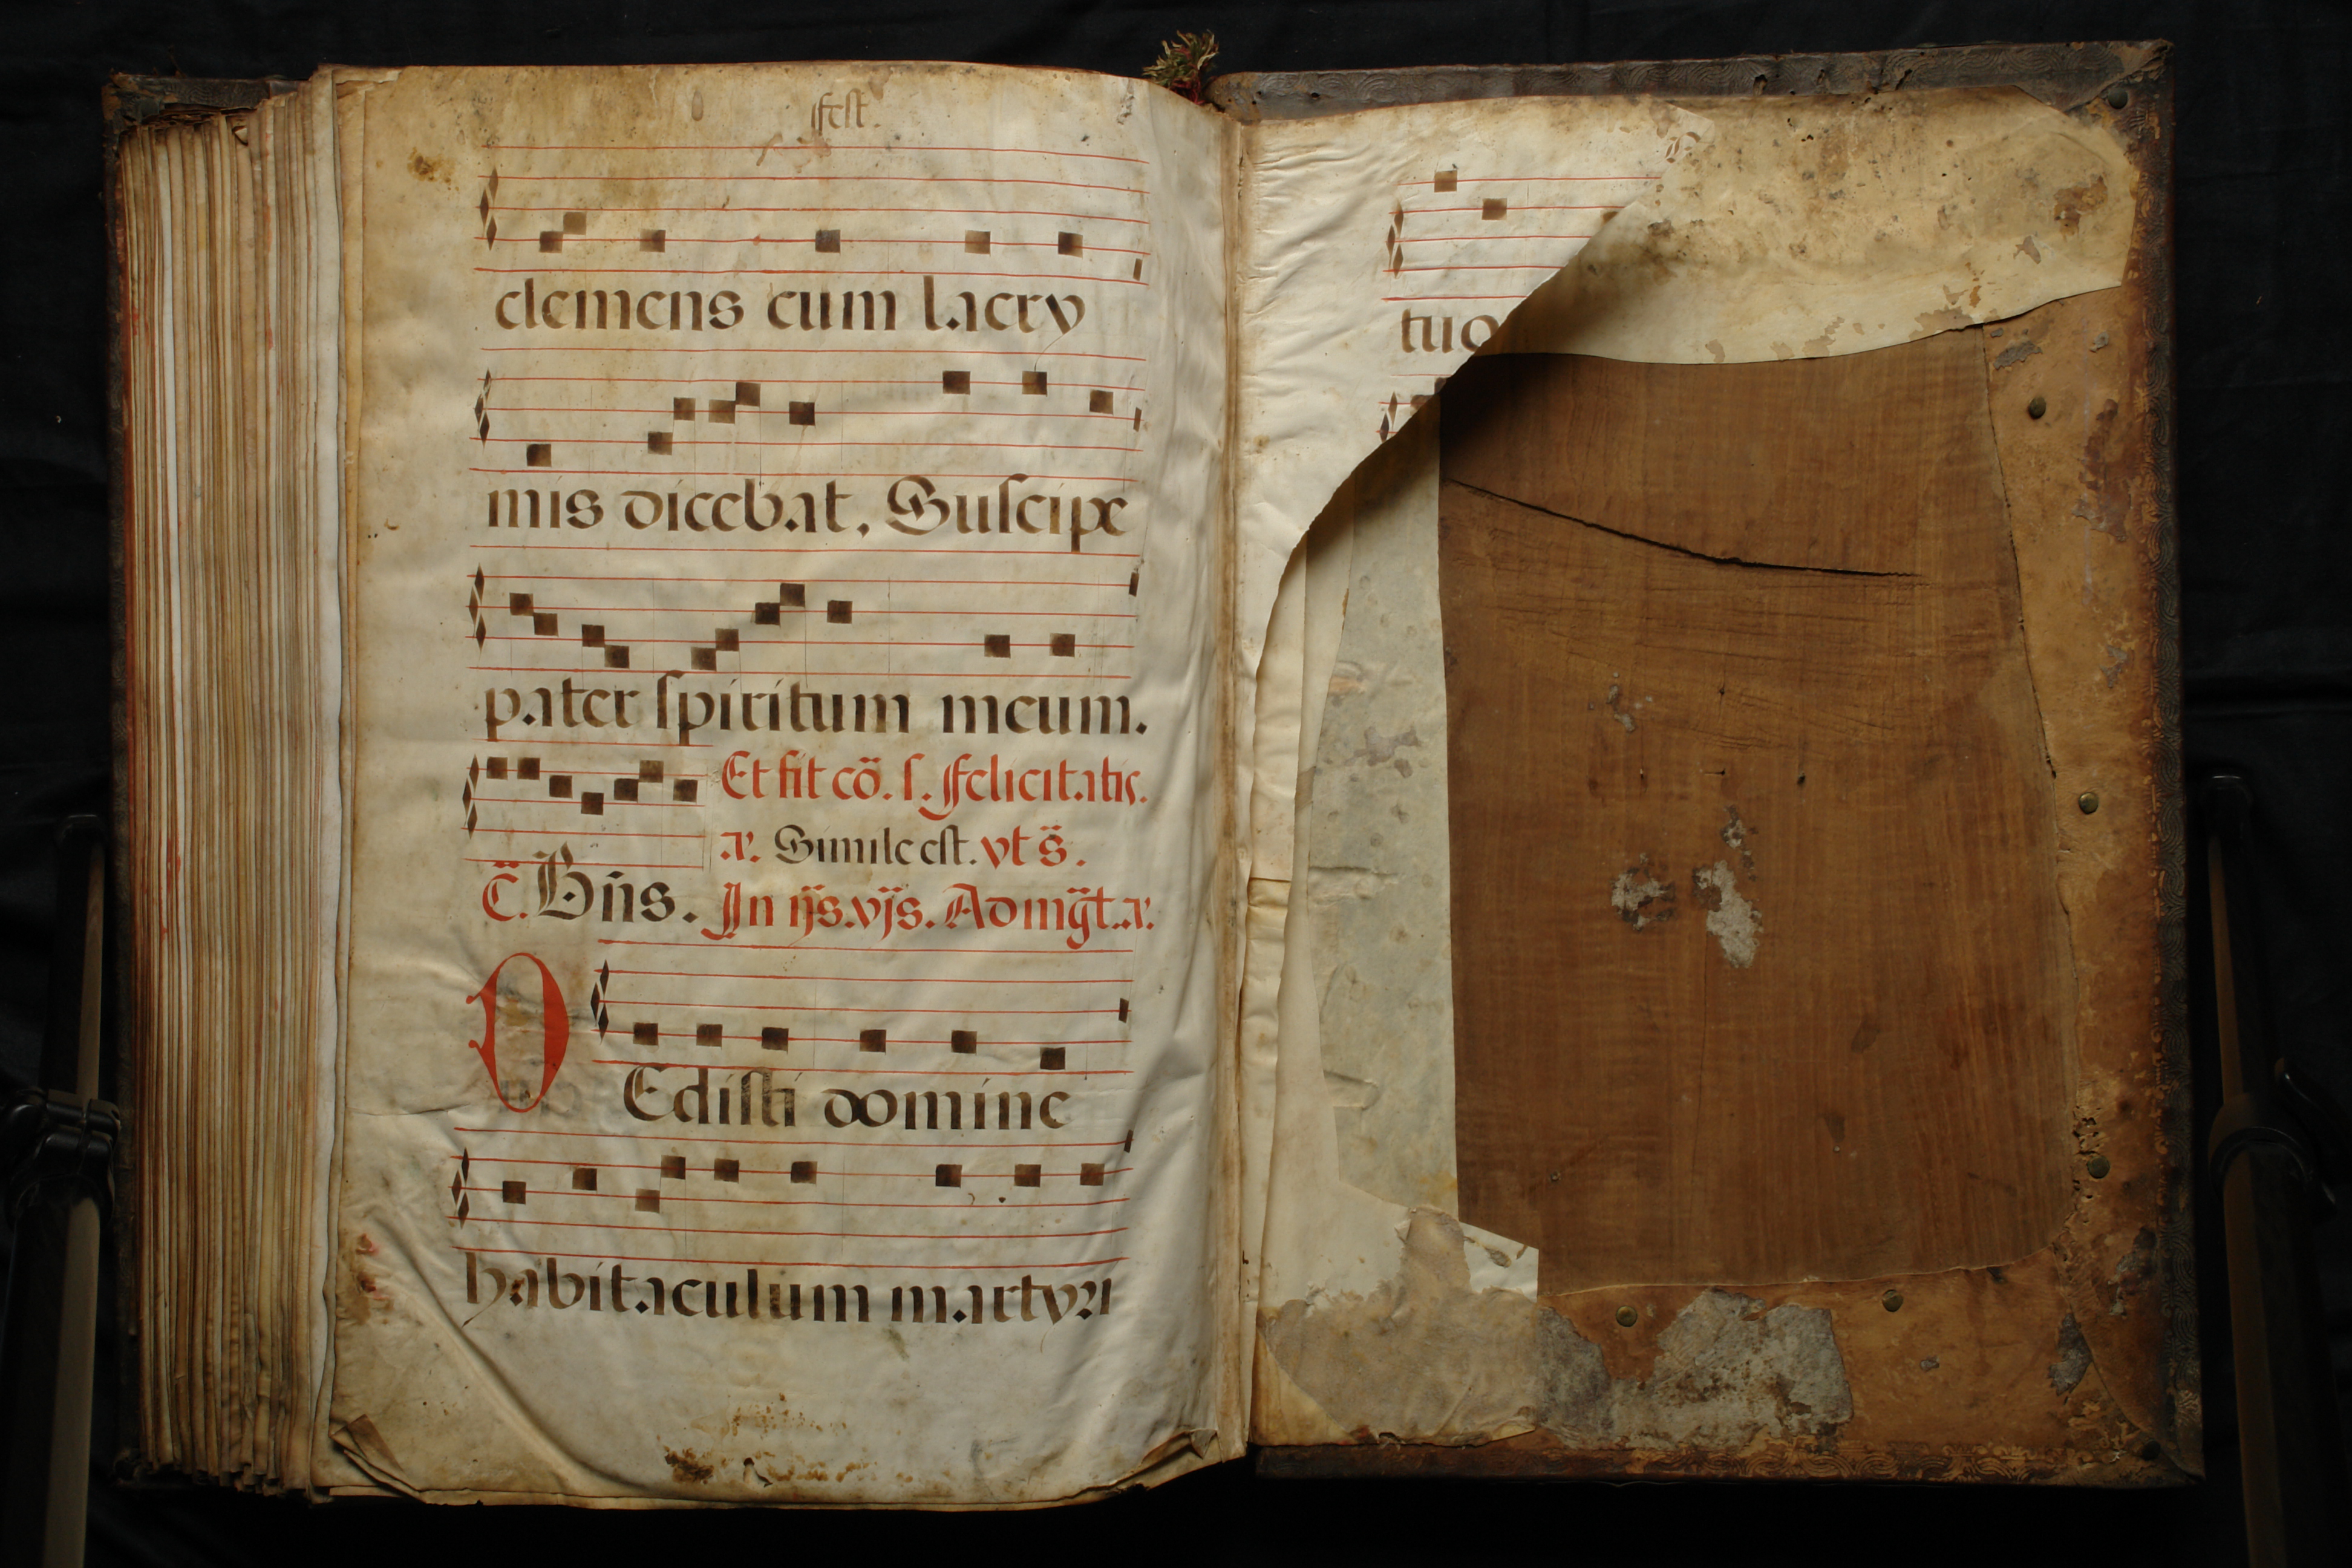 fest.
clemens cum lacry
mis dicebat, Suscipe
pater spiritum meum.
Et fit cõ. s. Felicitatis.
Simile est. vt s̃.
C̃. Bñs. In ijs. vjs. Ad mg̃t.
DEdisti domine
habitaculum martyri
tuo